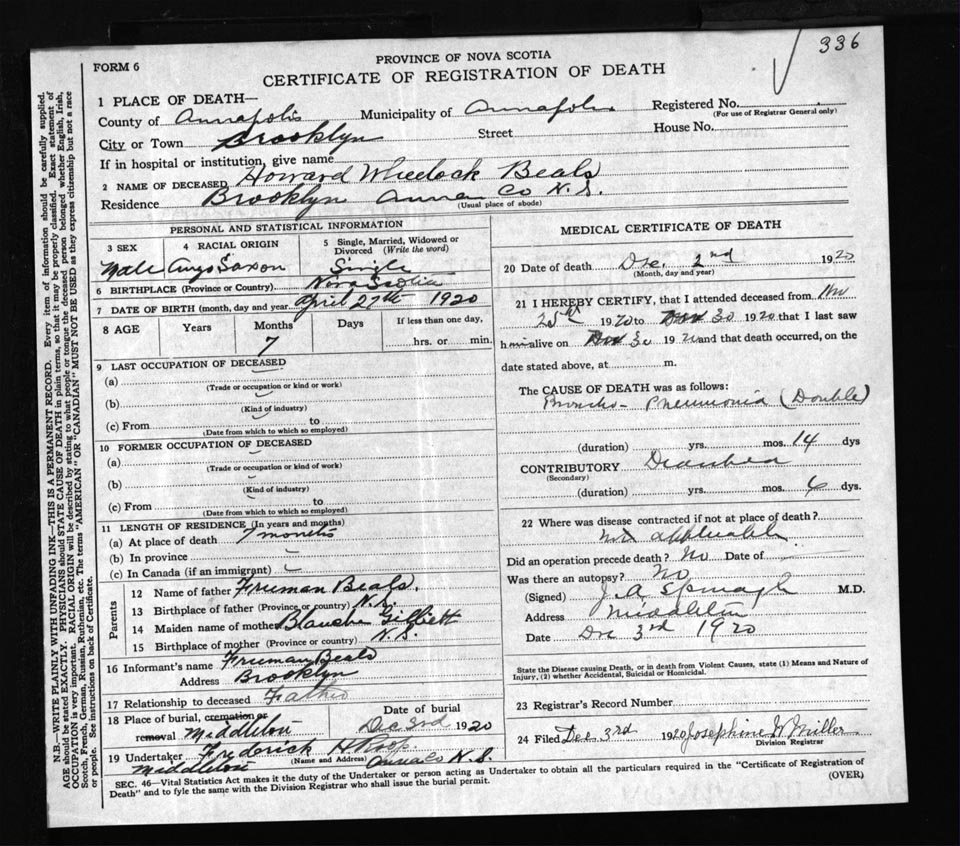 336
FORM 6
PROVINCE OF NOVA SCOTIA
CERTIFICATE OF REGISTRATION OF DEATH
1 PLACE OF DEATH—
County of Annapolis Municipality of Annapolis Registered No.
(For use of Registrar General only)
City or Town Brooklyn Street House No.
If in hospital or institution, give name
2 NAME OF DECEASED Howard Wheelock Beals
Residence Brooklyn Anna Co N.S.
(Usual place of abode)
PERSONAL AND STATISTICAL INFORMATION
3 SEX 4 RACIAL ORIGIN 5 Single, Married, Widowed or Divorced (Write the word)
Male Anglo Saxon Single
6 BIRTHPLACE (Province or Country) Nova Scotia
7 DATE OF BIRTH (month, day and year) April 27th 1920
8 AGE Years Months Days If less than one day,
7 hrs. or min.
9 LAST OCCUPATION OF DECEASED
(a)
(Trade or occupation or kind of work)
(b)
(Kind of industry)
(c) From to
(Date from which to which so employed)
10 FORMER OCCUPATION OF DECEASED
(a)
(Trade or occupation or kind of work)
(b)
(Kind of industry)
(c) From to
(Date from which to which so employed)
11 LENGTH OF RESIDENCE (In years and months)
(a) At place of death 7 months
(b) In province
(c) In Canada (if an immigrant)
Parents
12 Name of father Freeman Beals.
13 Birthplace of father (Province or country) N.S.
14 Maiden name of mother Blanche
15 Birthplace of mother (Province or country) N.S.
16 Informant's name Freeman Beals
Address Brooklyn
17 Relationship to deceased Father
18 Place of burial, cremation or removal Middleton Date of burial Dec 3rd 1920
19 Undertaker Frederick
(Name and Address)
Middleton Anna Co N.S.
MEDICAL CERTIFICATE OF DEATH
20 Date of death Dec. 2nd 1920
(Month, day and year)
21 I HEREBY CERTIFY, that I attended deceased from Nov
25th 1920 to Nov 30 1920 that I last saw
h alive on Nov 30 1920 and that death occurred, on the
date stated above, at m.
The CAUSE OF DEATH was as follows:
Broncho- Pneumonia (Double)
(duration) yrs. mos. 14 dys
CONTRIBUTORY Diarrhea
(Secondary)
(duration) yrs. mos. 6 dys.
22 Where was disease contracted if not at place of death?
Not applicable
Did an operation precede death? No Date of
Was there an autopsy? No
(Signed) J. A. M.D.
Address Middleton
Date Dec 3rd 1920
State the Disease causing Death, or in death from Violent Causes, state (1) Means and Nature of
Injury, (2) whether Accidental, Suicidal or Homicidal.
23 Registrar's Record Number
24 Filed Dec. 3rd 1920 Josephine Miller
Division Registrar
SEC. 46—Vital Statistics Act makes it the duty of the Undertaker or person acting as Undertaker to obtain all the particulars required in the "Certificate of Registration of
Death" and to fyle the same with the Division Registrar who shall issue the burial permit. (OVER)
N.B.—WRITE PLAINLY WITH UNFADING INK—THIS IS A PERMANENT RECORD. Every item of information should be carefully supplied.
AGE should be stated EXACTLY. PHYSICIANS should STATE CAUSE OF DEATH in plain terms, so that it may be properly classified. Exact statement of
OCCUPATION is very important. RACIAL ORIGIN will be described by stating to what people or tongue the deceased person belonged whether English, Irish,
Scotch, French, German, Russian, Ruthenian, etc. The terms "AMERICAN" OR "CANADIAN" MUST NOT BE USED as they express citizenship but not a race
or people. See instructions on back of Certificate.